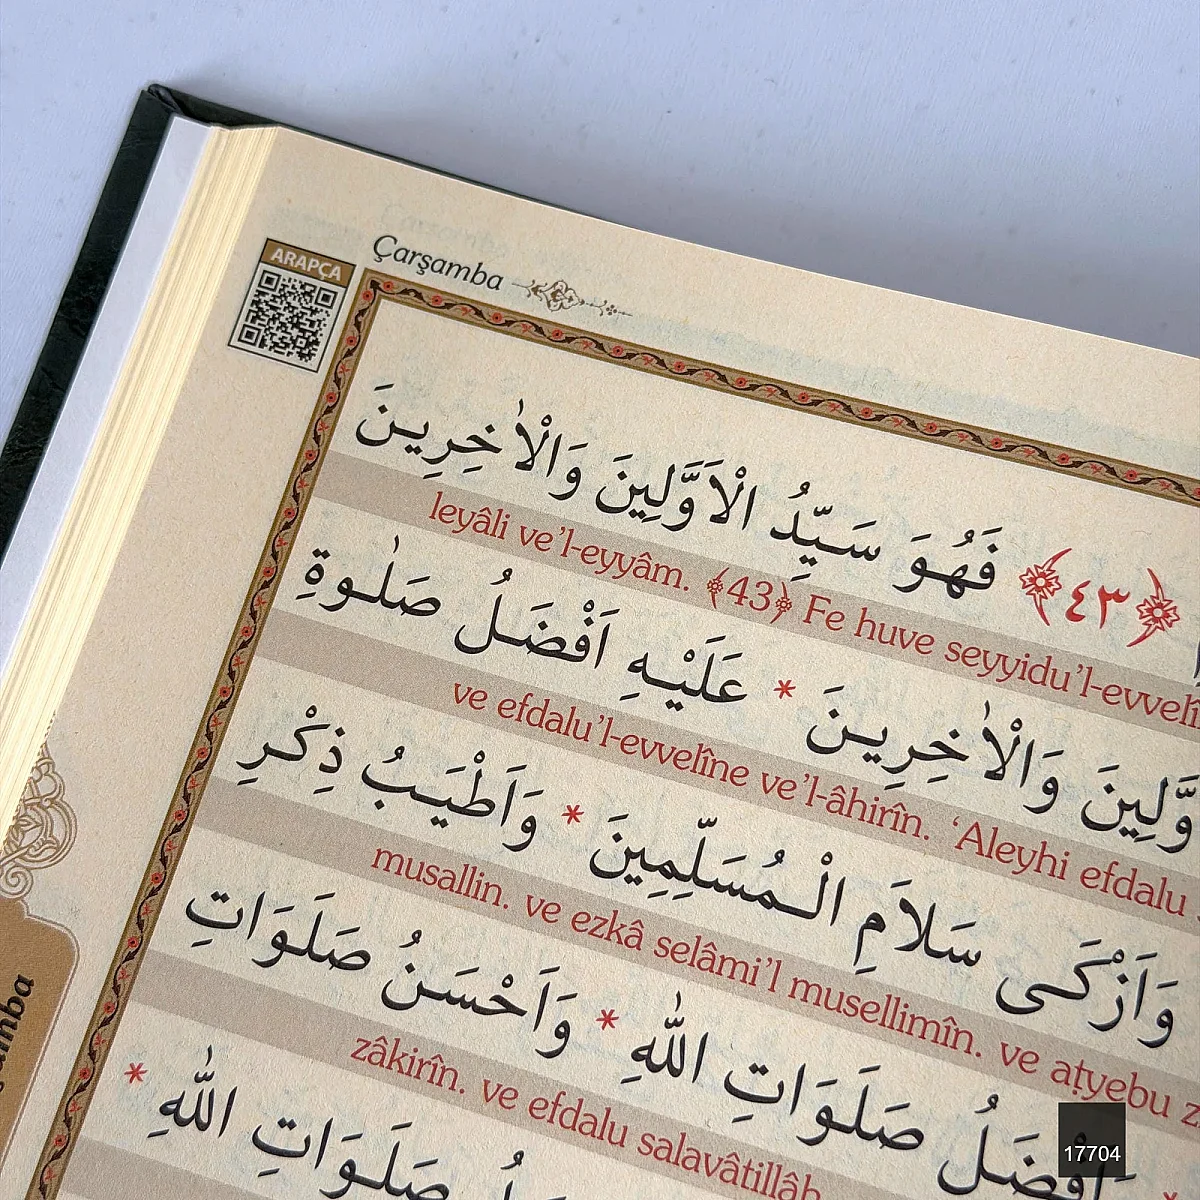 ARAPÇA
Çarşamba
﴿٤٣﴾ فَهُوَ سَيِّدُ الْاَوَّلِينَ وَالْاٰخِرِينَ
leyâli ve’l-eyyâm. ﴾43﴿ Fe huve seyyidu’l-evvelî
وَالْاٰخِرِينَ * عَلَيْهِ اَفْضَلُ صَلٰوةِ
ve efdalu’l-evvelîne ve’l-âhirîn. ‘Aleyhi efdalu
وَاَزْكَى سَلاَمِ الْمُسَلِّمِينَ * وَاَطْيَبُ ذِكْرِ
musallin. ve ezkâ selâmi’l musellimîn. ve aṭyebu
اَفْضَلُ صَلَوَاتِ اللّٰهِ * وَاَحْسَنُ صَلَوَاتِ
zâkirîn. ve efdalu salavâtillâh
صَلَوَاتِ اللّٰهِ *
17704